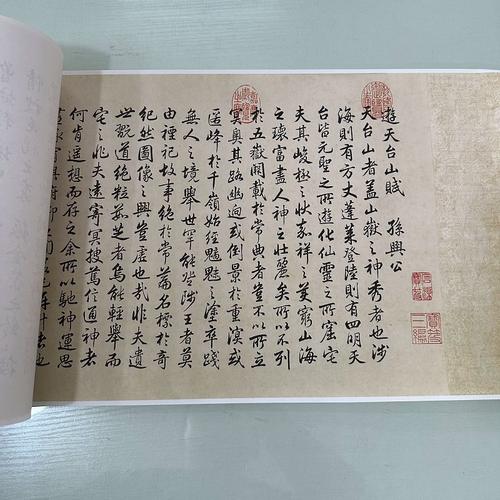 遊天台山賦 孫興公
天台山者盖山嶽之神秀者也涉
海則有方丈蓬莱登陸則有四明天
台皆元聖之所遊化仙靈之所窟宅
夫其峻極之狀嘉祥之美窮山海
之瓌富盡人神之壮麗矣所以不列
於五嶽闕載於常典者豈不以所立
冥奥其路幽迥或倒景於重溟或
匿峰於千嶺始經魑魅之塗卒踐
無人之境舉世罕能登陟王者莫
由禋祀故事絶於常篇名標於奇
紀然圖像之興豈虚也哉非夫遺
世翫道絶粒茹芝者烏能輕舉而
宅之非夫遠寄冥搜篤信通神者
何肯遥想而存之余所以馳神運思
晝詠宵興俯仰之間若已再升者也